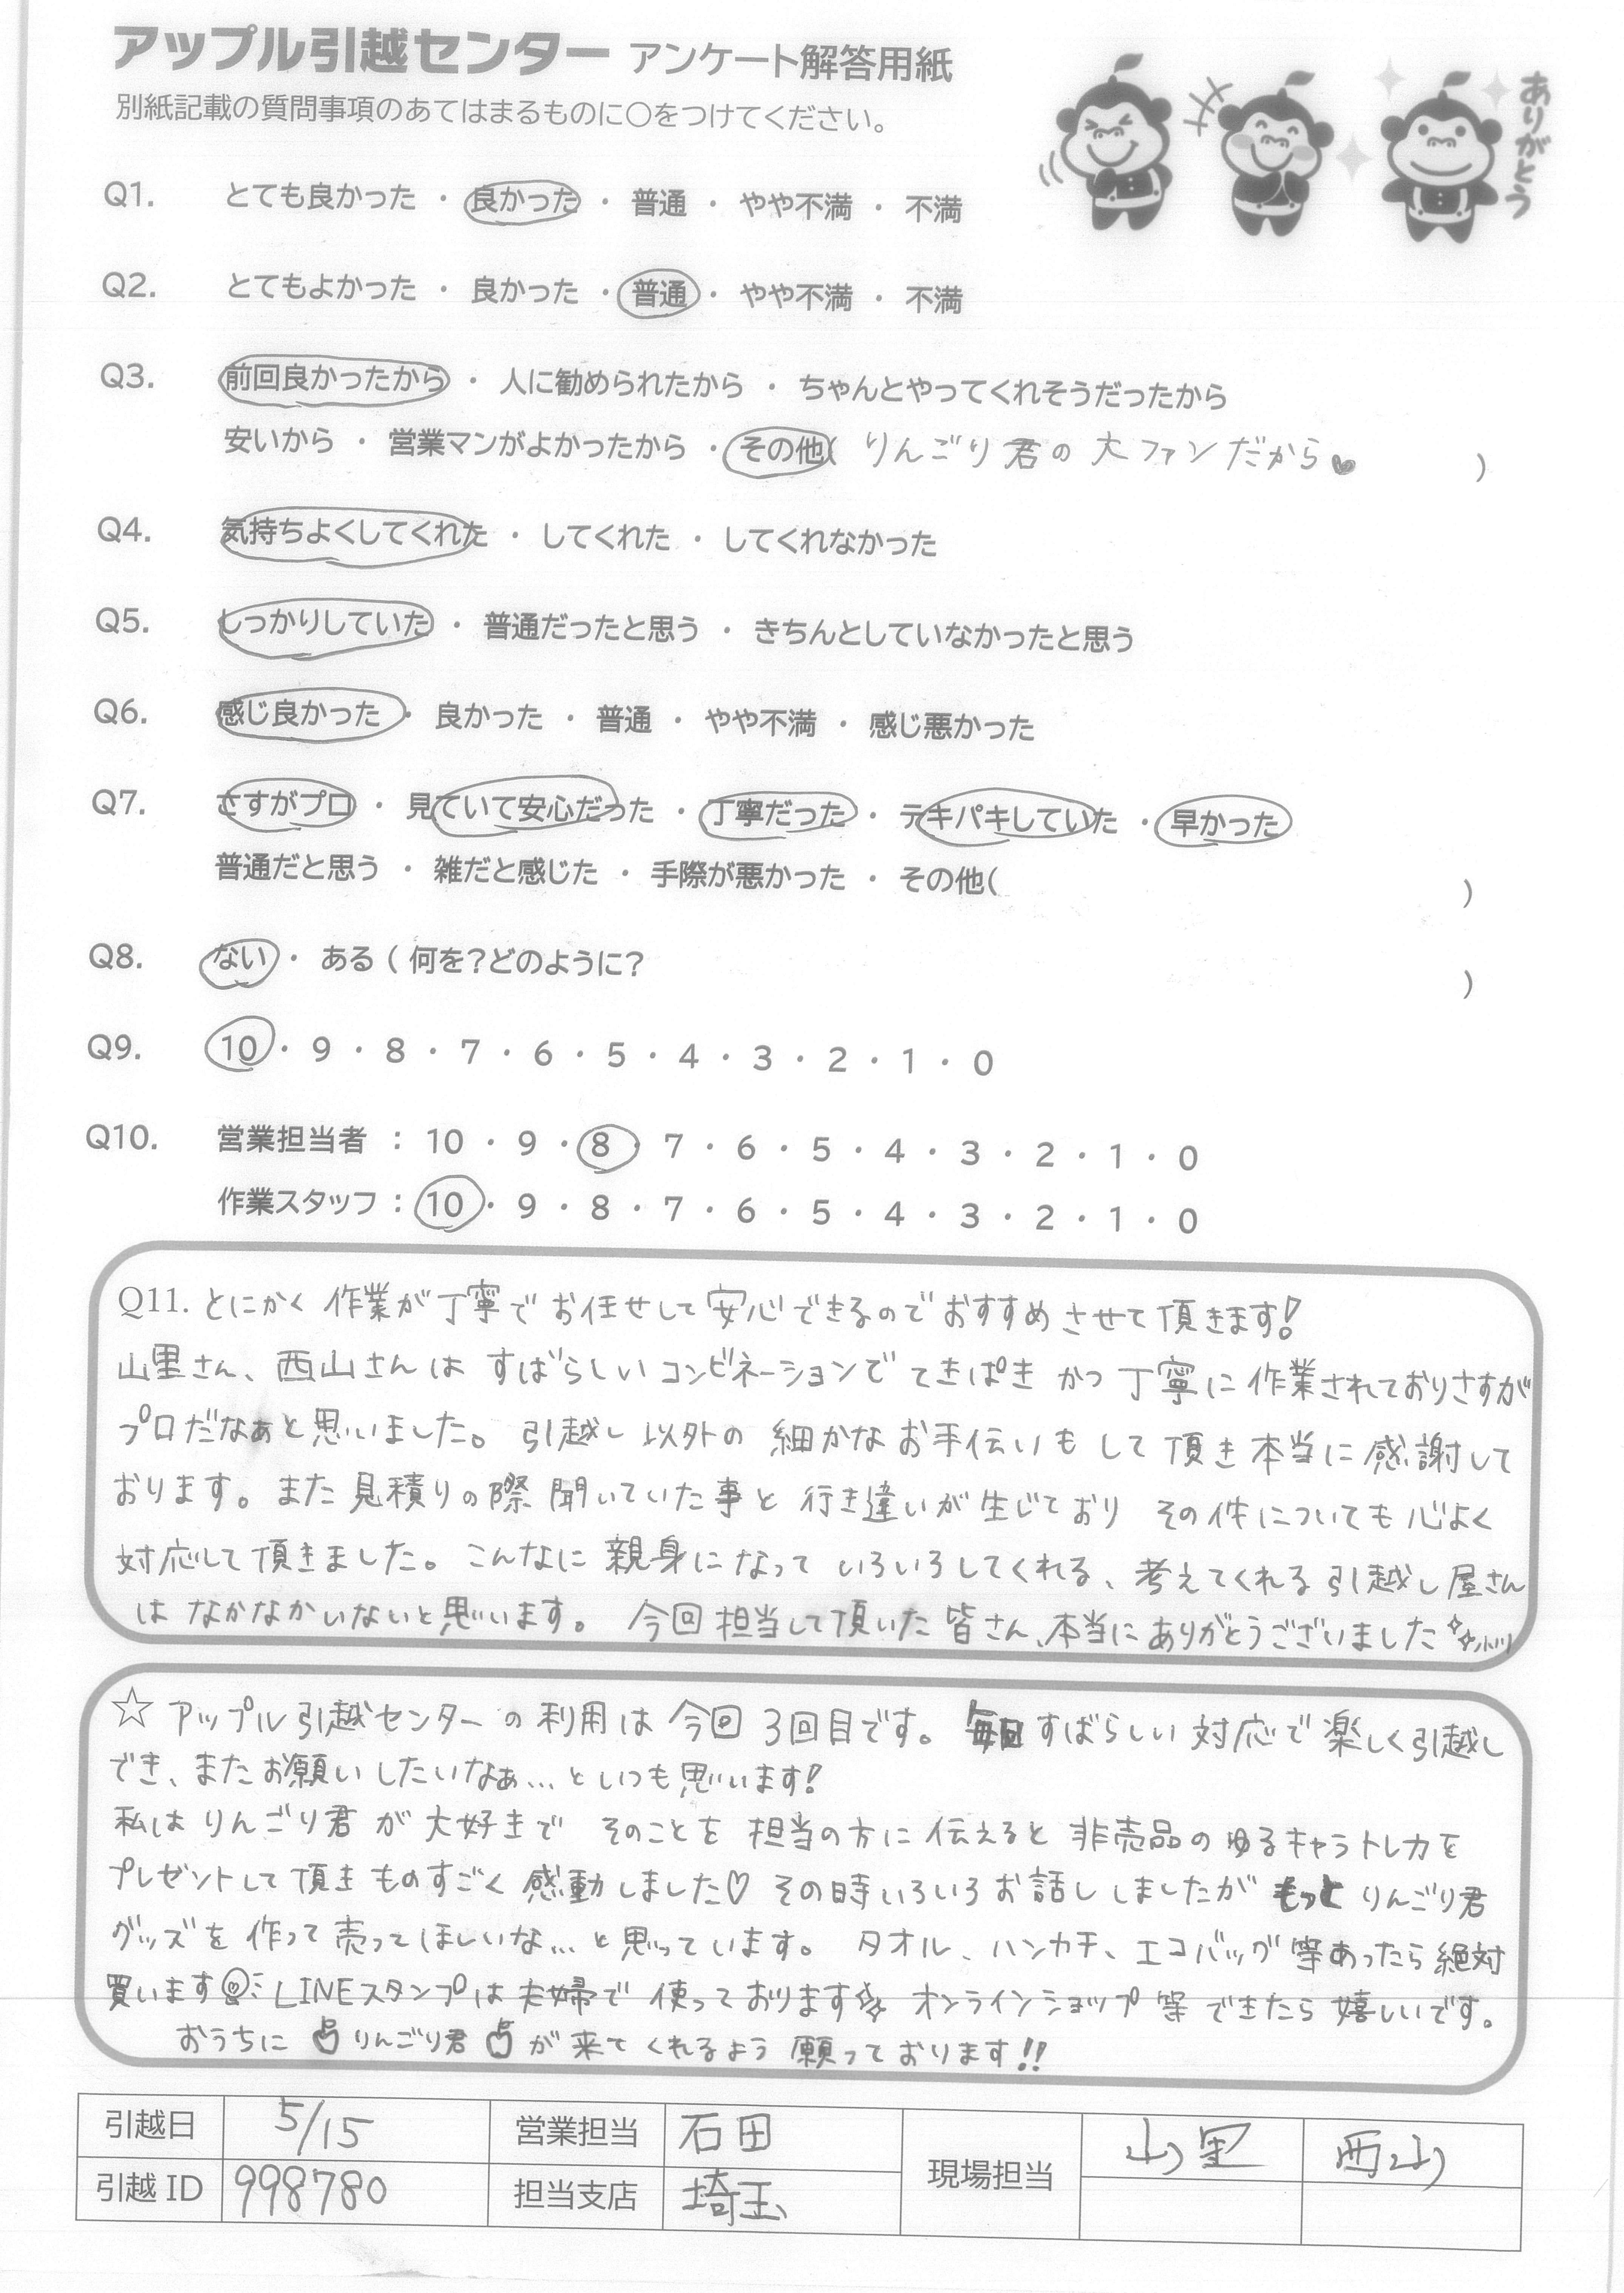 アップル引越センター アンケート解答用紙
別紙記載の質問事項のあてはまるものに〇をつけてください。
ありがとう
Q1. とても良かった ・ 良かった ・ 普通 ・ やや不満 ・ 不満
Q2. とてもよかった ・ 良かった ・ 普通 ・ やや不満 ・ 不満
Q3. 前回良かったから ・ 人に勧められたから ・ ちゃんとやってくれそうだったから
安いから ・ 営業マンがよかったから ・ その他( りんごり君の大ファンだから♥ )
Q4. 気持ちよくしてくれた ・ してくれた ・ してくれなかった
Q5. しっかりしていた ・ 普通だったと思う ・ きちんとしていなかったと思う
Q6. 感じ良かった ・ 良かった ・ 普通 ・ やや不満 ・ 感じ悪かった
Q7. さすがプロ ・ 見ていて安心だった ・ 丁寧だった ・ テキパキしていた ・ 早かった
普通だと思う ・ 雑だと感じた ・ 手際が悪かった ・ その他( )
Q8. ない ・ ある ( 何を?どのように? )
Q9. 10 ・ 9 ・ 8 ・ 7 ・ 6 ・ 5 ・ 4 ・ 3 ・ 2 ・ 1 ・ 0
Q10. 営業担当者 : 10 ・ 9 ・ 8 ・ 7 ・ 6 ・ 5 ・ 4 ・ 3 ・ 2 ・ 1 ・ 0
作業スタッフ : 10 ・ 9 ・ 8 ・ 7 ・ 6 ・ 5 ・ 4 ・ 3 ・ 2 ・ 1 ・ 0
Q11. とにかく作業が丁寧でお任せして安心できるのでおすすめさせて頂きます!
山里さん、西山さんはすばらしいコンビネーションでてきぱきかつ丁寧に作業されておりさすが
プロだなぁと思いました。引越し以外の細かなお手伝いもして頂き本当に感謝して
おります。また見積りの際聞いていた事と行き違いが生じており その件についても心よく
対応して頂きました。こんなに親身になっていろいろしてくれる、考えてくれる引越し屋さん
はなかなかいないと思います。 今回担当して頂いた皆さん、本当にありがとうございました
☆ アップル引越センターの利用は今回3回目です。毎回すばらしい対応で楽しく引越し
でき、またお願いしたいなぁ…といつも思います!
私はりんごり君が大好きで そのことを担当の方に伝えると非売品のゆるキャラトレカを
プレゼントして頂きものすごく感動しました♡ その時いろいろお話ししましたが もっとりんごり君
グッズを作って売ってほしいな…と思っています。 タオル、ハンカチ、エコバッグ等あったら絶対
買います LINEスタンプは夫婦で使っております☆ オンラインショップ等できたら嬉しいです。
おうちに りんごり君 が来てくれるよう願っております!!
引越日 5/15 営業担当 石田 現場担当 山里 西山
引越ID 998780 担当支店 埼玉